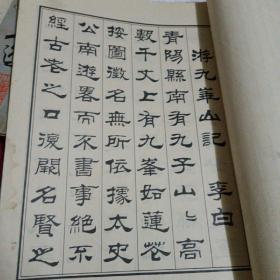 游九華山記 李白
青陽縣南有九子山〻高
數千丈上有九峯如蓮花
按圖徵名無所依據太史
公南遊畧而不書事絕不
經古老之口復闕名賢之